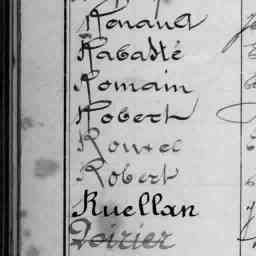 Renault
Rabasté
Romain
Robert
Rouxel
Robert
Ruellan
Poirier